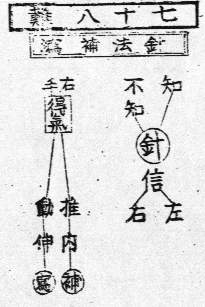 七十八難
針法補瀉
知
不知
針
信
左
右
右
得氣
推内
補
動伸
寫